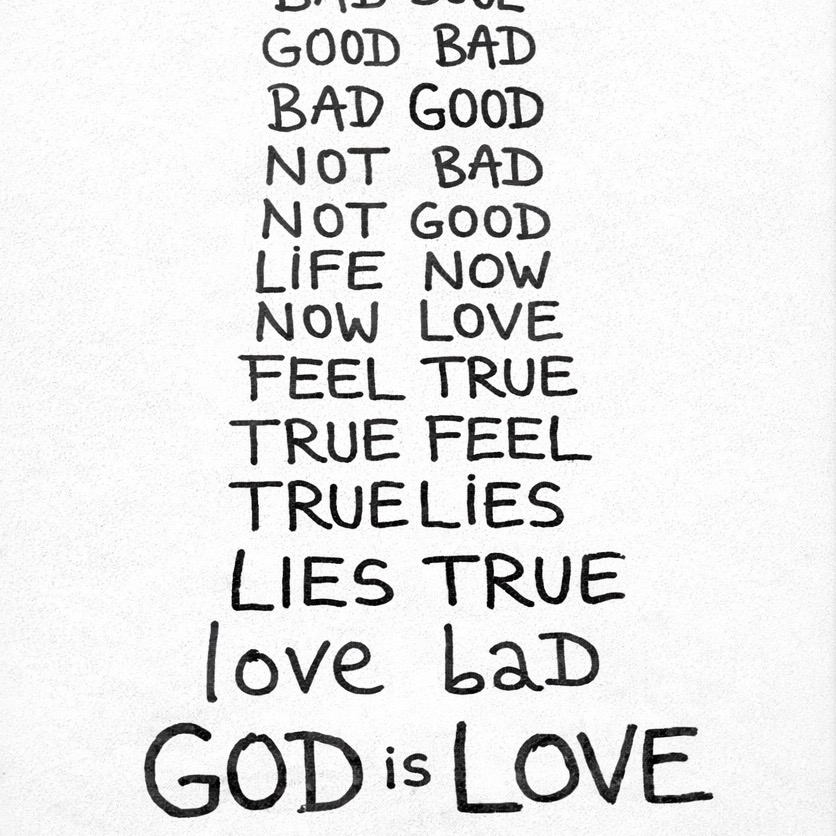 BAD SOUL
GOOD BAD
BAD GOOD
NOT BAD
NOT GOOD
LiFE NOW
NOW LOVE
FEEL TRUE
TRUE FEEL
TRUE LiES
LIES TRUE
love baD
GOD is LOVE